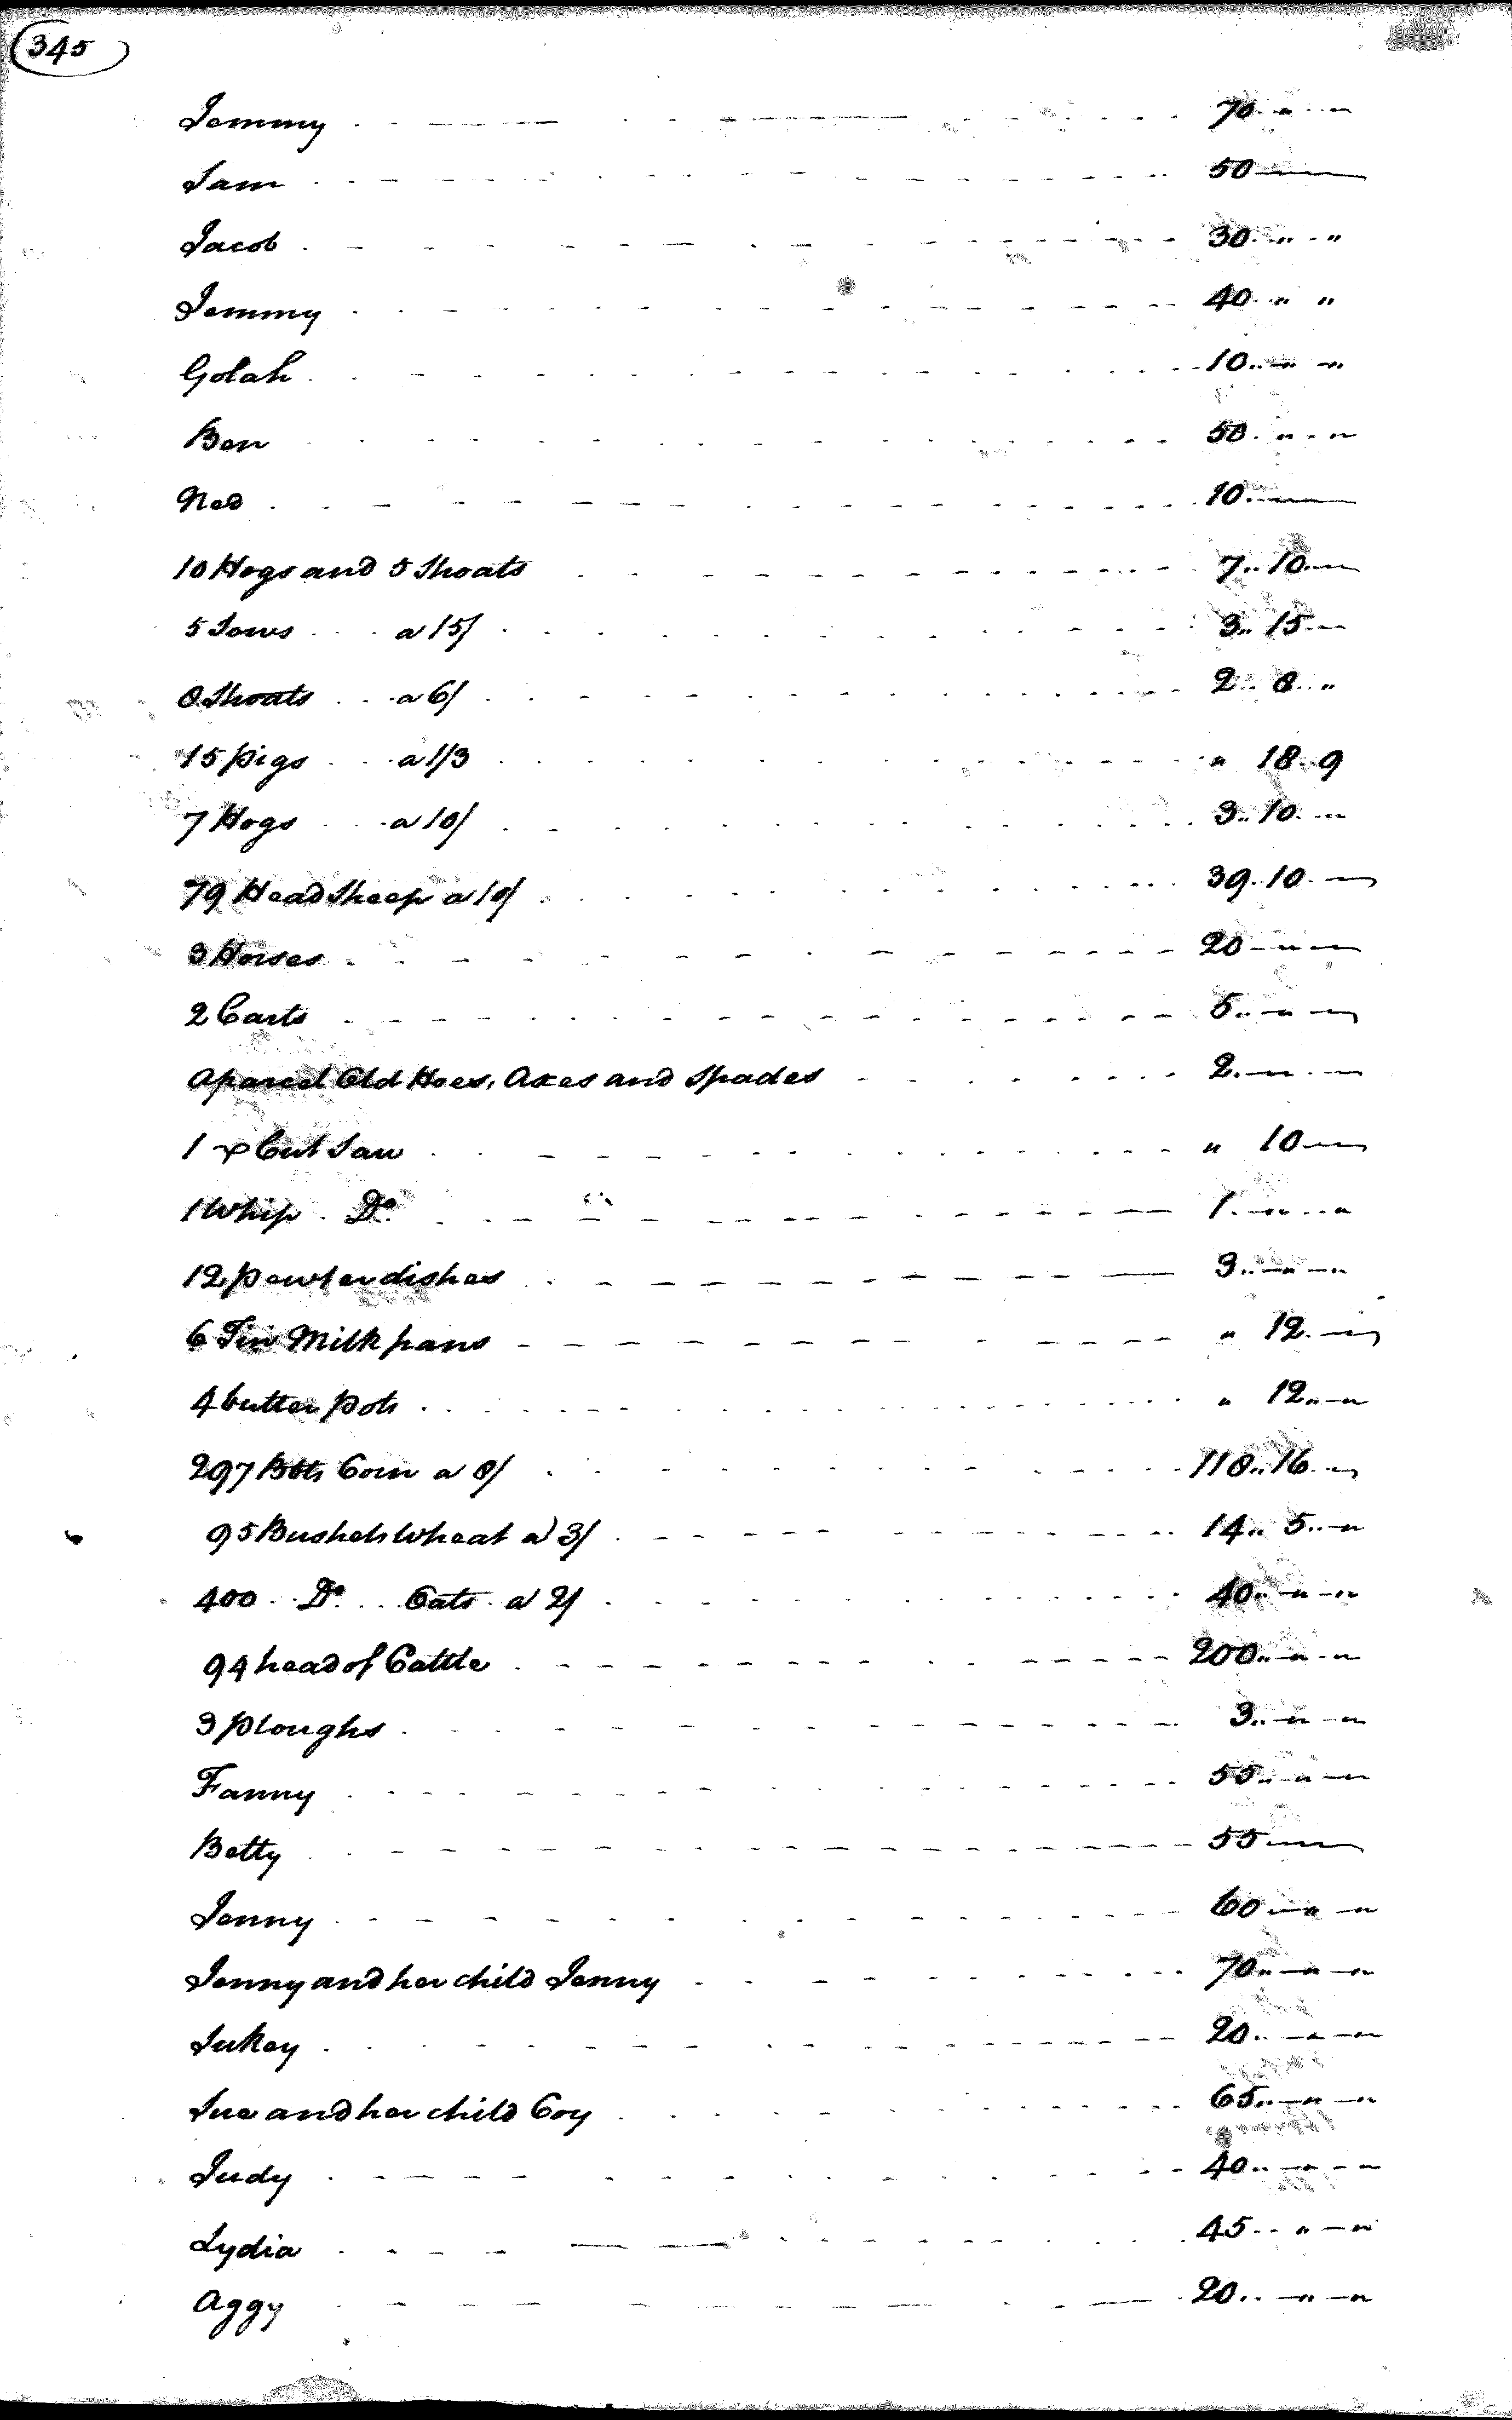 345
Jemmy 70 .. " .. "
Sam 50
Jacob 30 .. " .. "
Jemmy 40 .. " "
Golah 10 .. " "
Ben 50 .. " .. "
Ned 10
10 Hogs and 5 Shoats 7 .. 10 .. "
5 Sows a 15/ 3 .. 15 .. "
8 Shoats a 6/ 2 .. 8 .. "
15 pigs a 1/3 " 18 .. 9
7 Hogs a 10/ 3 .. 10 .. "
79 Head Sheep a 10/ 39 .. 10 .. "
3 Horses 20 .. " .. "
2 Carts 5 .. " .. "
A parcel Old Hoes, Axes and Spades 2 .. " .. "
1 x Cut Saw " 10 .. "
1 Whip Do. 1 .. " .. "
12 pewter dishes 3 .. " .. "
6 Tin Milk pans " 12 .. "
4 butter pots " 12 .. "
297 Bbls Corn a 8/ 118 .. 16 .. "
95 Bushels Wheat a 3/ 14 .. 5 .. "
400 Do. Oats a 2/ 40 .. " .. "
94 head of Cattle 200 .. " .. "
3 ploughs 3 .. " .. "
Fanny 55 .. " .. "
Betty 55
Jenny 60 .. " .. "
Jenny and her child Jenny 70 .. " .. "
Sukey 20 .. " .. "
Sue and her child Coy 65 .. " .. "
Judy 40 .. " .. "
Lydia 45 .. " .. "
Aggy 20 .. " .. "